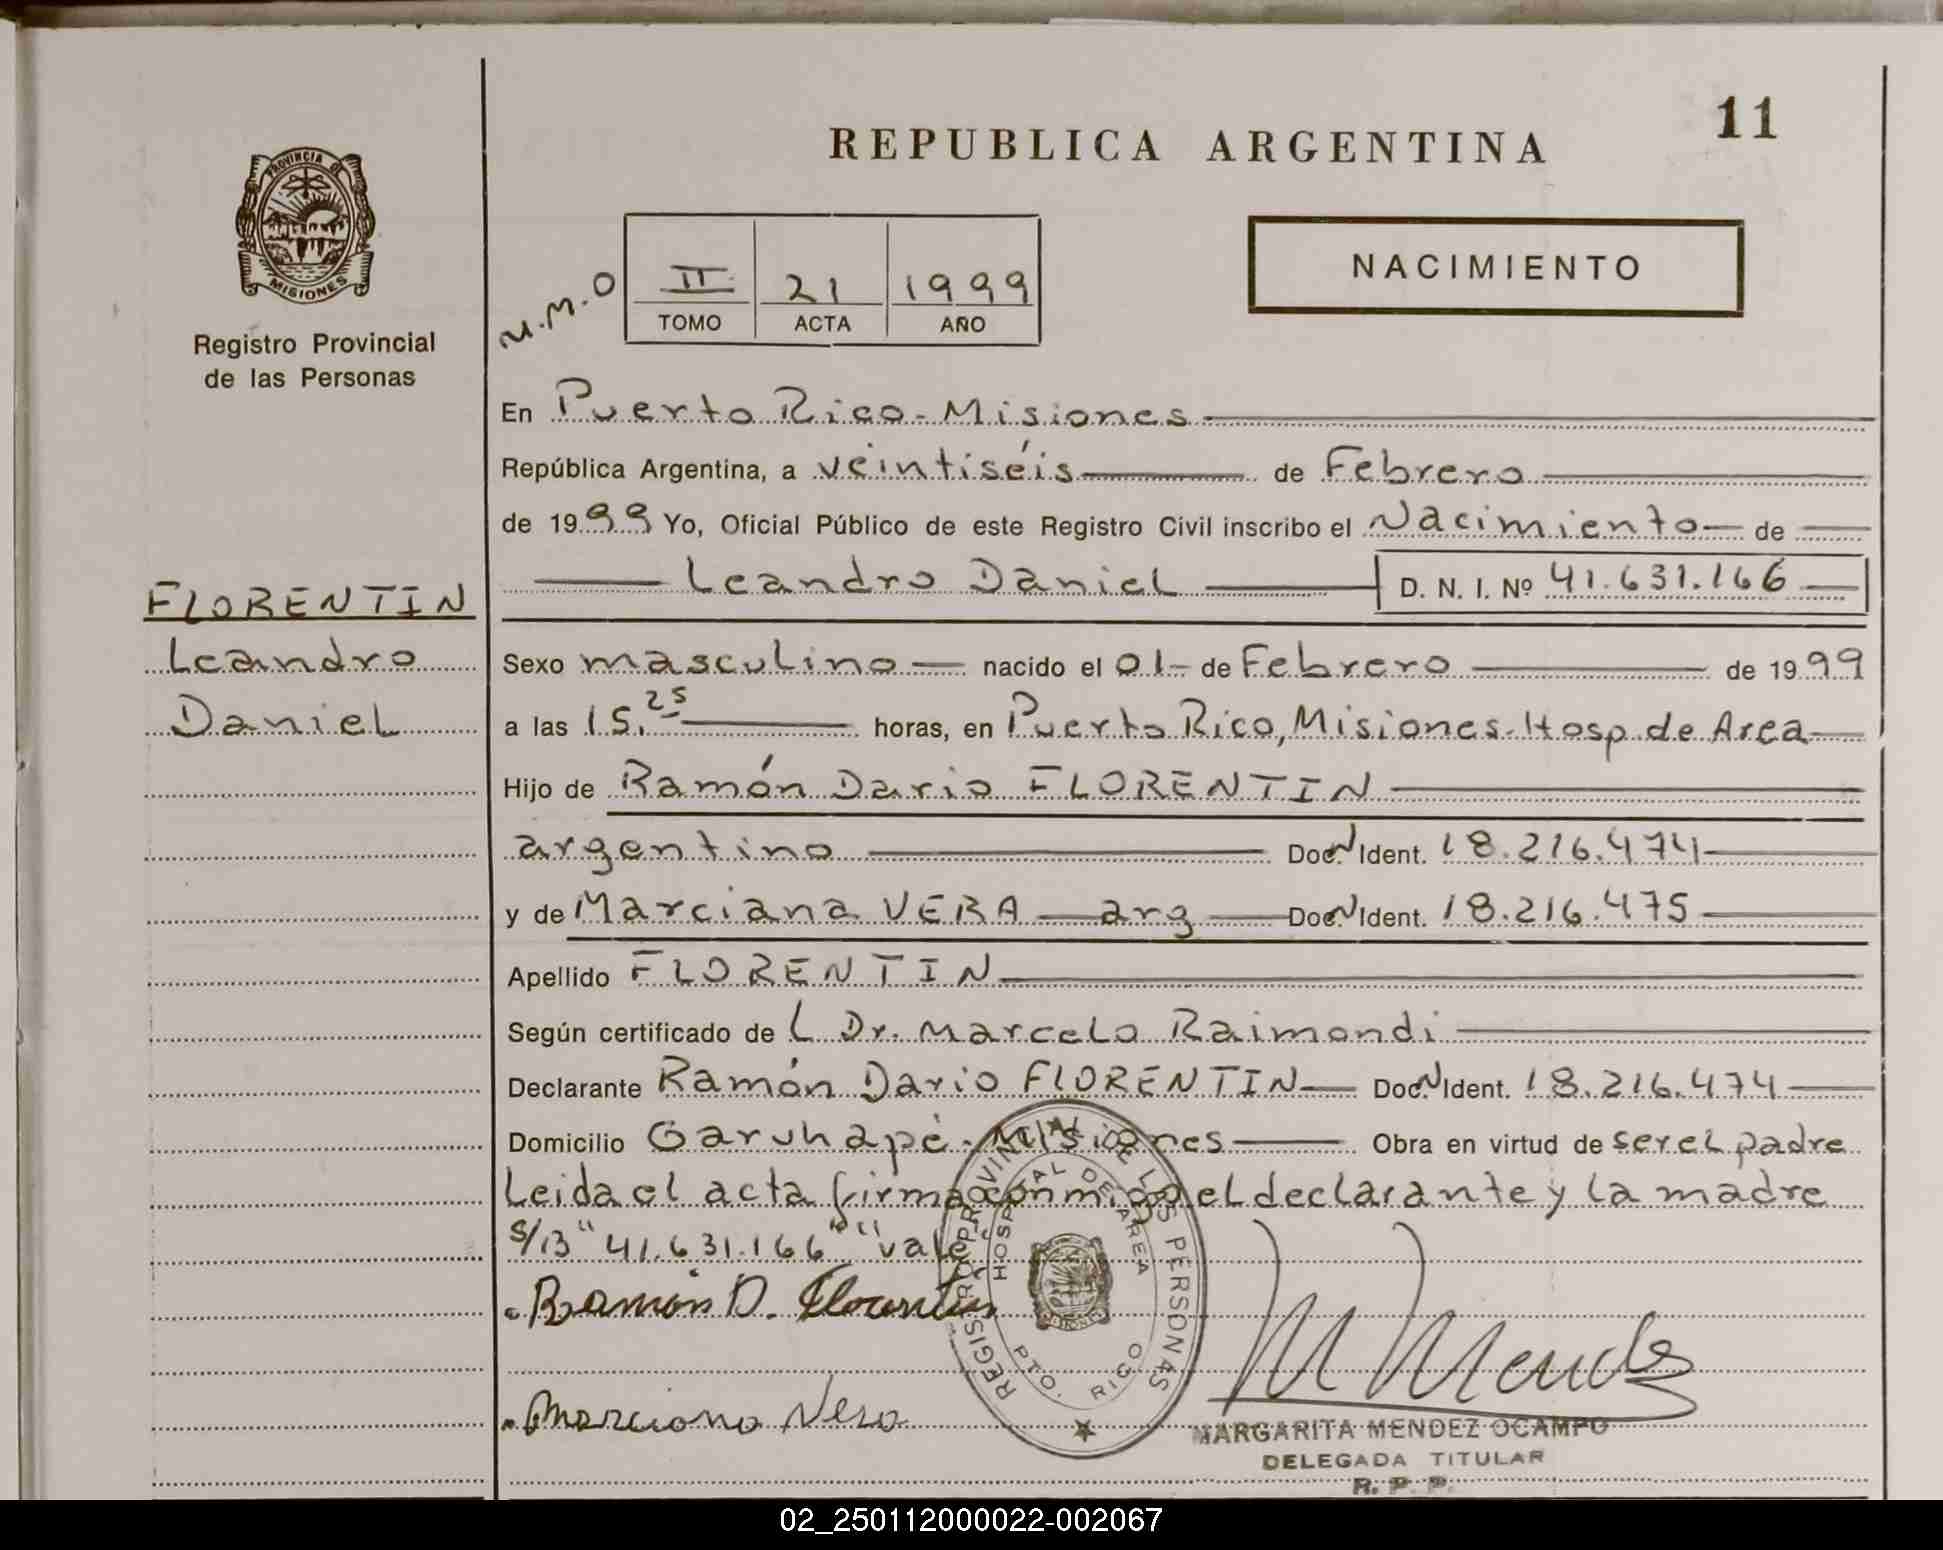 11
REPUBLICA ARGENTINA
PROVINCIA DE
MISIONES
Registro Provincial
de las Personas
II 21 1999
TOMO ACTA AÑO
NACIMIENTO
En Puerto Rico - Misiones
República Argentina, a veintiséis de Febrero
de 1999 Yo, Oficial Público de este Registro Civil inscribo el Nacimiento de
Leandro Daniel D. N. I. Nº 41.631.166
FLORENTIN
Leandro
Daniel
Sexo masculino nacido el 01 de Febrero de 1999
a las 15.25 horas, en Puerto Rico, Misiones - Hosp. de Area
Hijo de Ramón Dario FLORENTIN
argentino Doc. N Ident. 18.216.474
y de Marciana VERA arg Doc. N Ident. 18.216.475
Apellido FLORENTIN
Según certificado de L Dr. Marcelo Raimondi
Declarante Ramón Dario FLORENTIN Doc. N Ident. 18.216.474
Domicilio Garuhapé - Misiones Obra en virtud de ser el padre
Leida el acta firma conmigo el declarante y la madre
S/B "41.631.166" "vale"
Ramón D. Florentin
Marciana Vera
REGISTRO PROVINCIAL DE LAS PERSONAS
HOSPITAL DE AREA
PTO. RICO
M Mendez
MARGARITA MENDEZ OCAMPO
DELEGADA TITULAR
R. P. P.
02_250112000022-002067